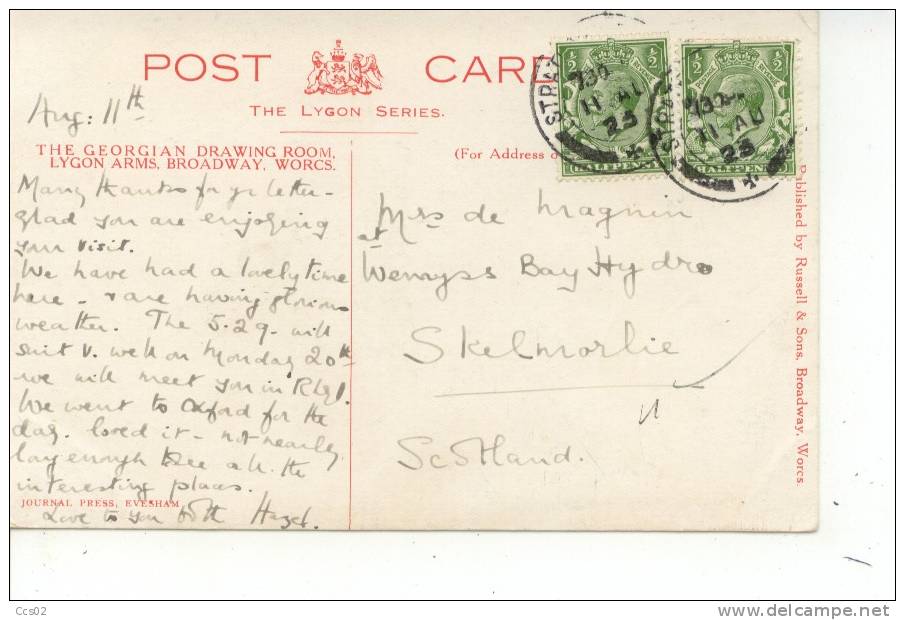 POST CARD
THE LYGON SERIES.
Aug: 11th
THE GEORGIAN DRAWING ROOM,
LYGON ARMS, BROADWAY, WORCS.
(For Address o
Many thanks for yr letter -
glad you are enjoying
your visit.
We have had a lovely time
here - & are having glorious
weather. The 5.29. will
suit v. well on Monday 20th
we will meet you in
We went to Oxford for the
day. loved it - not nearly
long enough to see all the
interesting places.
Love to you both Hazel.
JOURNAL PRESS, EVESHAM
½ ½
½ ½
HALFPENNY
HALFPENNY
STRAT
730
11 AU
23
730
11 AU
23
Mrs de Magnin
at
Wemyss Bay Hydro
Skelmorlie
Scotland.
Published by Russell & Sons, Broadway, Worcs
Ccs02
delcampe.net